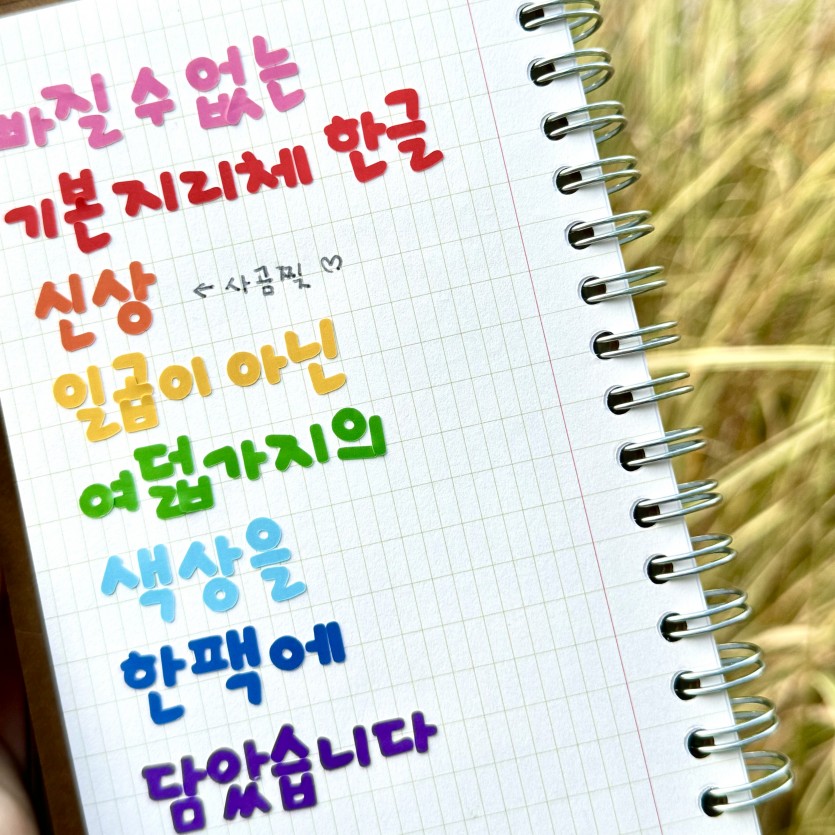 빠질 수 없는
기본 지리체 한글
신상 ← 사곰찢 ♡
일곱이 아닌
여덟가지의
색상을
한팩에
담았습니다